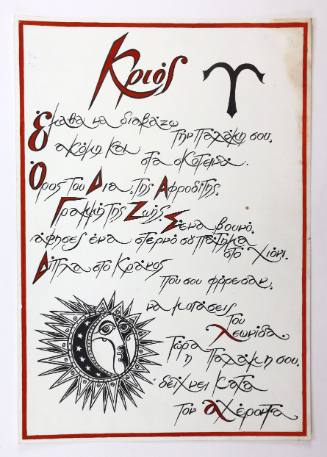 Κριός
Έμαθα να διαβάζω
την παλάμη σου.
ακόμη και
στα σκοτεινά.
Όρος του Δία, της Αφροδίτης.
Γραμμή της Ζωής. Σ' ένα βουνό.
άφησες ένα στερνό σου πάτημα
στο χιόνι.
Δίπλα στο Κράνος
που σου φόρεσαν.
να μοιάσεις
του
Λεωνίδα
Τώρα
η παλάμη σου.
δείχνει κατά
τον Αχέροντα